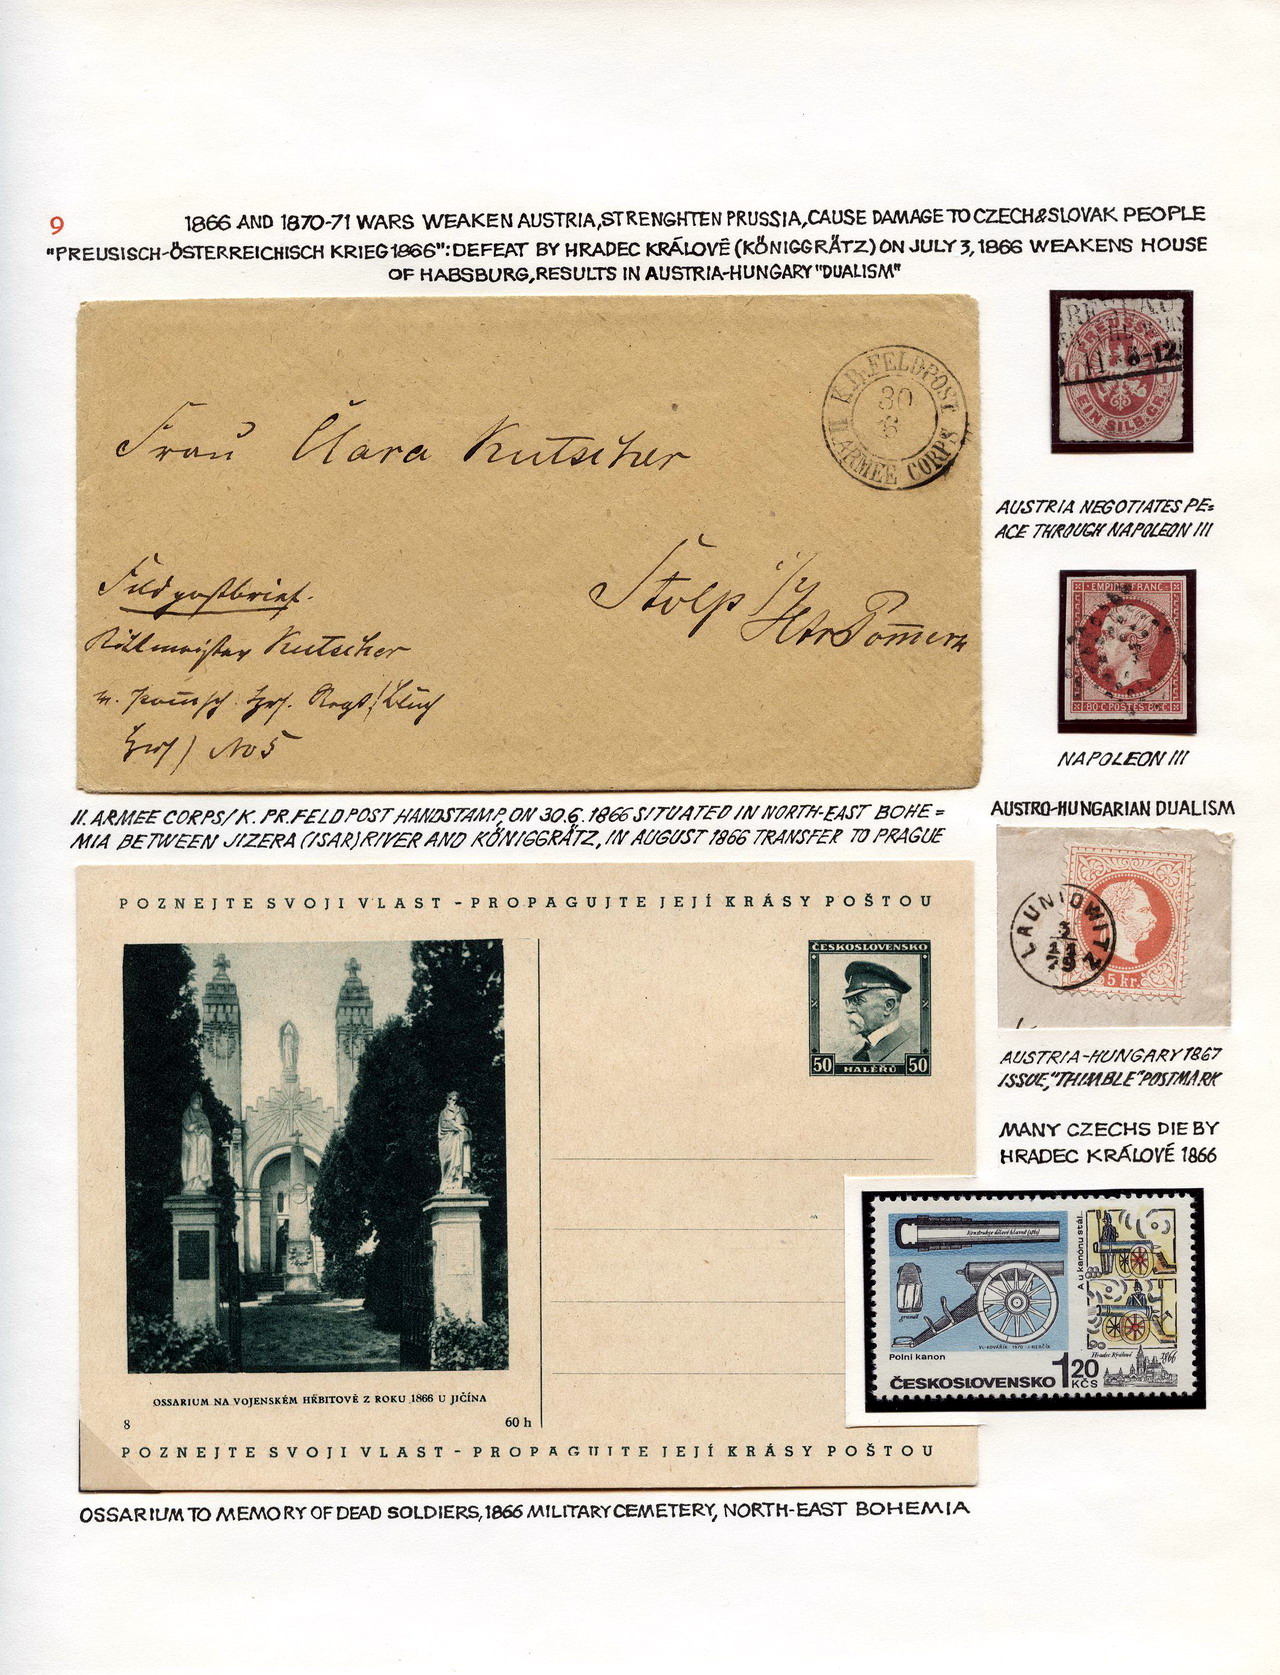 9
1866 AND 1870-71 WARS WEAKEN AUSTRIA, STRENGHTEN PRUSSIA, CAUSE DAMAGE TO CZECH & SLOVAK PEOPLE
"PREUSISCH-ÖSTERREICHISCH KRIEG 1866": DEFEAT BY HRADEC KRÁLOVÉ (KÖNIGGRÄTZ) ON JULY 3, 1866 WEAKENS HOUSE
OF HABSBURG, RESULTS IN AUSTRIA-HUNGARY "DUALISM"
K.PR. FELDPOST
30
6
II ARMEE CORPS
Frau Clara Kutscher
Stolp i/
Htr Pom̅ern
Feldpostbrief.
Rittmeister Kutscher
No 5
PREUSSEN
1 1
EIN SILB.GR.
AUSTRIA NEGOTIATES PE=
ACE THROUGH NAPOLEON III
EMPIRE FRANC
80 C POSTES 80 C
NAPOLEON III
II. ARMEE CORPS/K. PR. FELDPOST HANDSTAMP, ON 30.6.1866 SITUATED IN NORTH-EAST BOHE=
MIA BETWEEN JIZERA (ISAR) RIVER AND KÖNIGGRÄTZ, IN AUGUST 1866 TRANSFER TO PRAGUE
AUSTRO-HUNGARIAN DUALISM
LAUNIOWITZ
3
11
79
5 kr.
AUSTRIA-HUNGARY 1867
ISSUE, "THIMBLE" POSTMARK
POZNEJTE SVOJI VLAST - PROPAGUJTE JEJÍ KRÁSY POŠTOU
ČESKOSLOVENSKO
50 HALÉŘŮ 50
OSSARIUM NA VOJENSKÉM HŘBITOVĚ Z ROKU 1866 U JIČÍNA
8 60 h
POZNEJTE SVOJI VLAST - PROPAGUJTE JEJÍ KRÁSY POŠTOU
MANY CZECHS DIE BY
HRADEC KRÁLOVÉ 1866
Konstrukce dělové hlavně (1861)
granát
A u kanónu stál...
VL. KOVÁŘÍK 1970 - J. HERČÍK
Polní kanon
Hradec Králové 1866
ČESKOSLOVENSKO 1 20 KČS
OSSARIUM TO MEMORY OF DEAD SOLDIERS, 1866 MILITARY CEMETERY, NORTH-EAST BOHEMIA